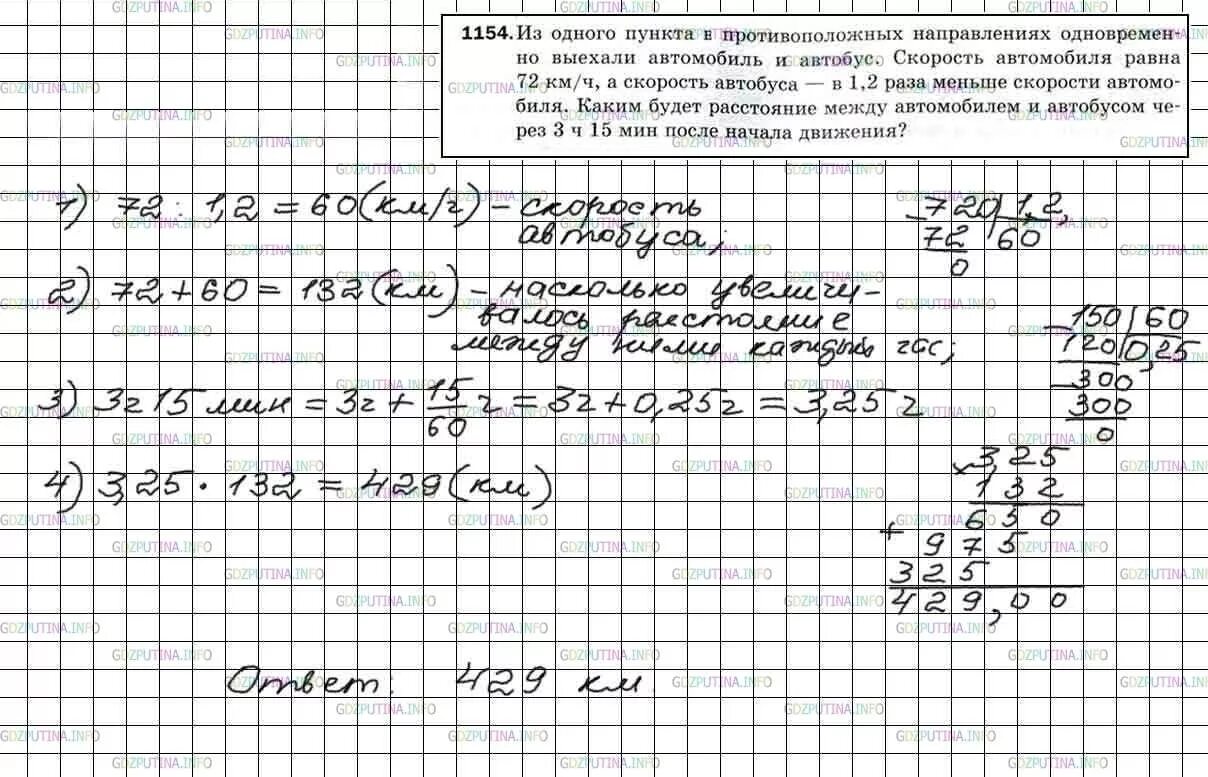 1154. Из одного пункта в противоположных направлениях одновремен-
но выехали автомобиль и автобус. Скорость автомобиля равна
72 км/ч, а скорость автобуса — в 1,2 раза меньше скорости автомо-
биля. Каким будет расстояние между автомобилем и автобусом че-
рез 3 ч 15 мин после начала движения?
1) 72 : 1,2 = 60 (км/ч) - скорость
автобуса;
720 | 1,2,
72 60
0
2) 72 + 60 = 132 (км) - насколько увеличи-
валось расстояние
между ними каждый час;
150 | 60
120 0,25
300
300
0
3) 3ч 15 мин = 3ч + 15/60 ч = 3ч + 0,25ч = 3,25 ч
4) 3,25 · 132 = 429 (км)
× 3,25
132
650
+ 975
325
429,00
Ответ: 429 км.
GDZPUTINA.INFO